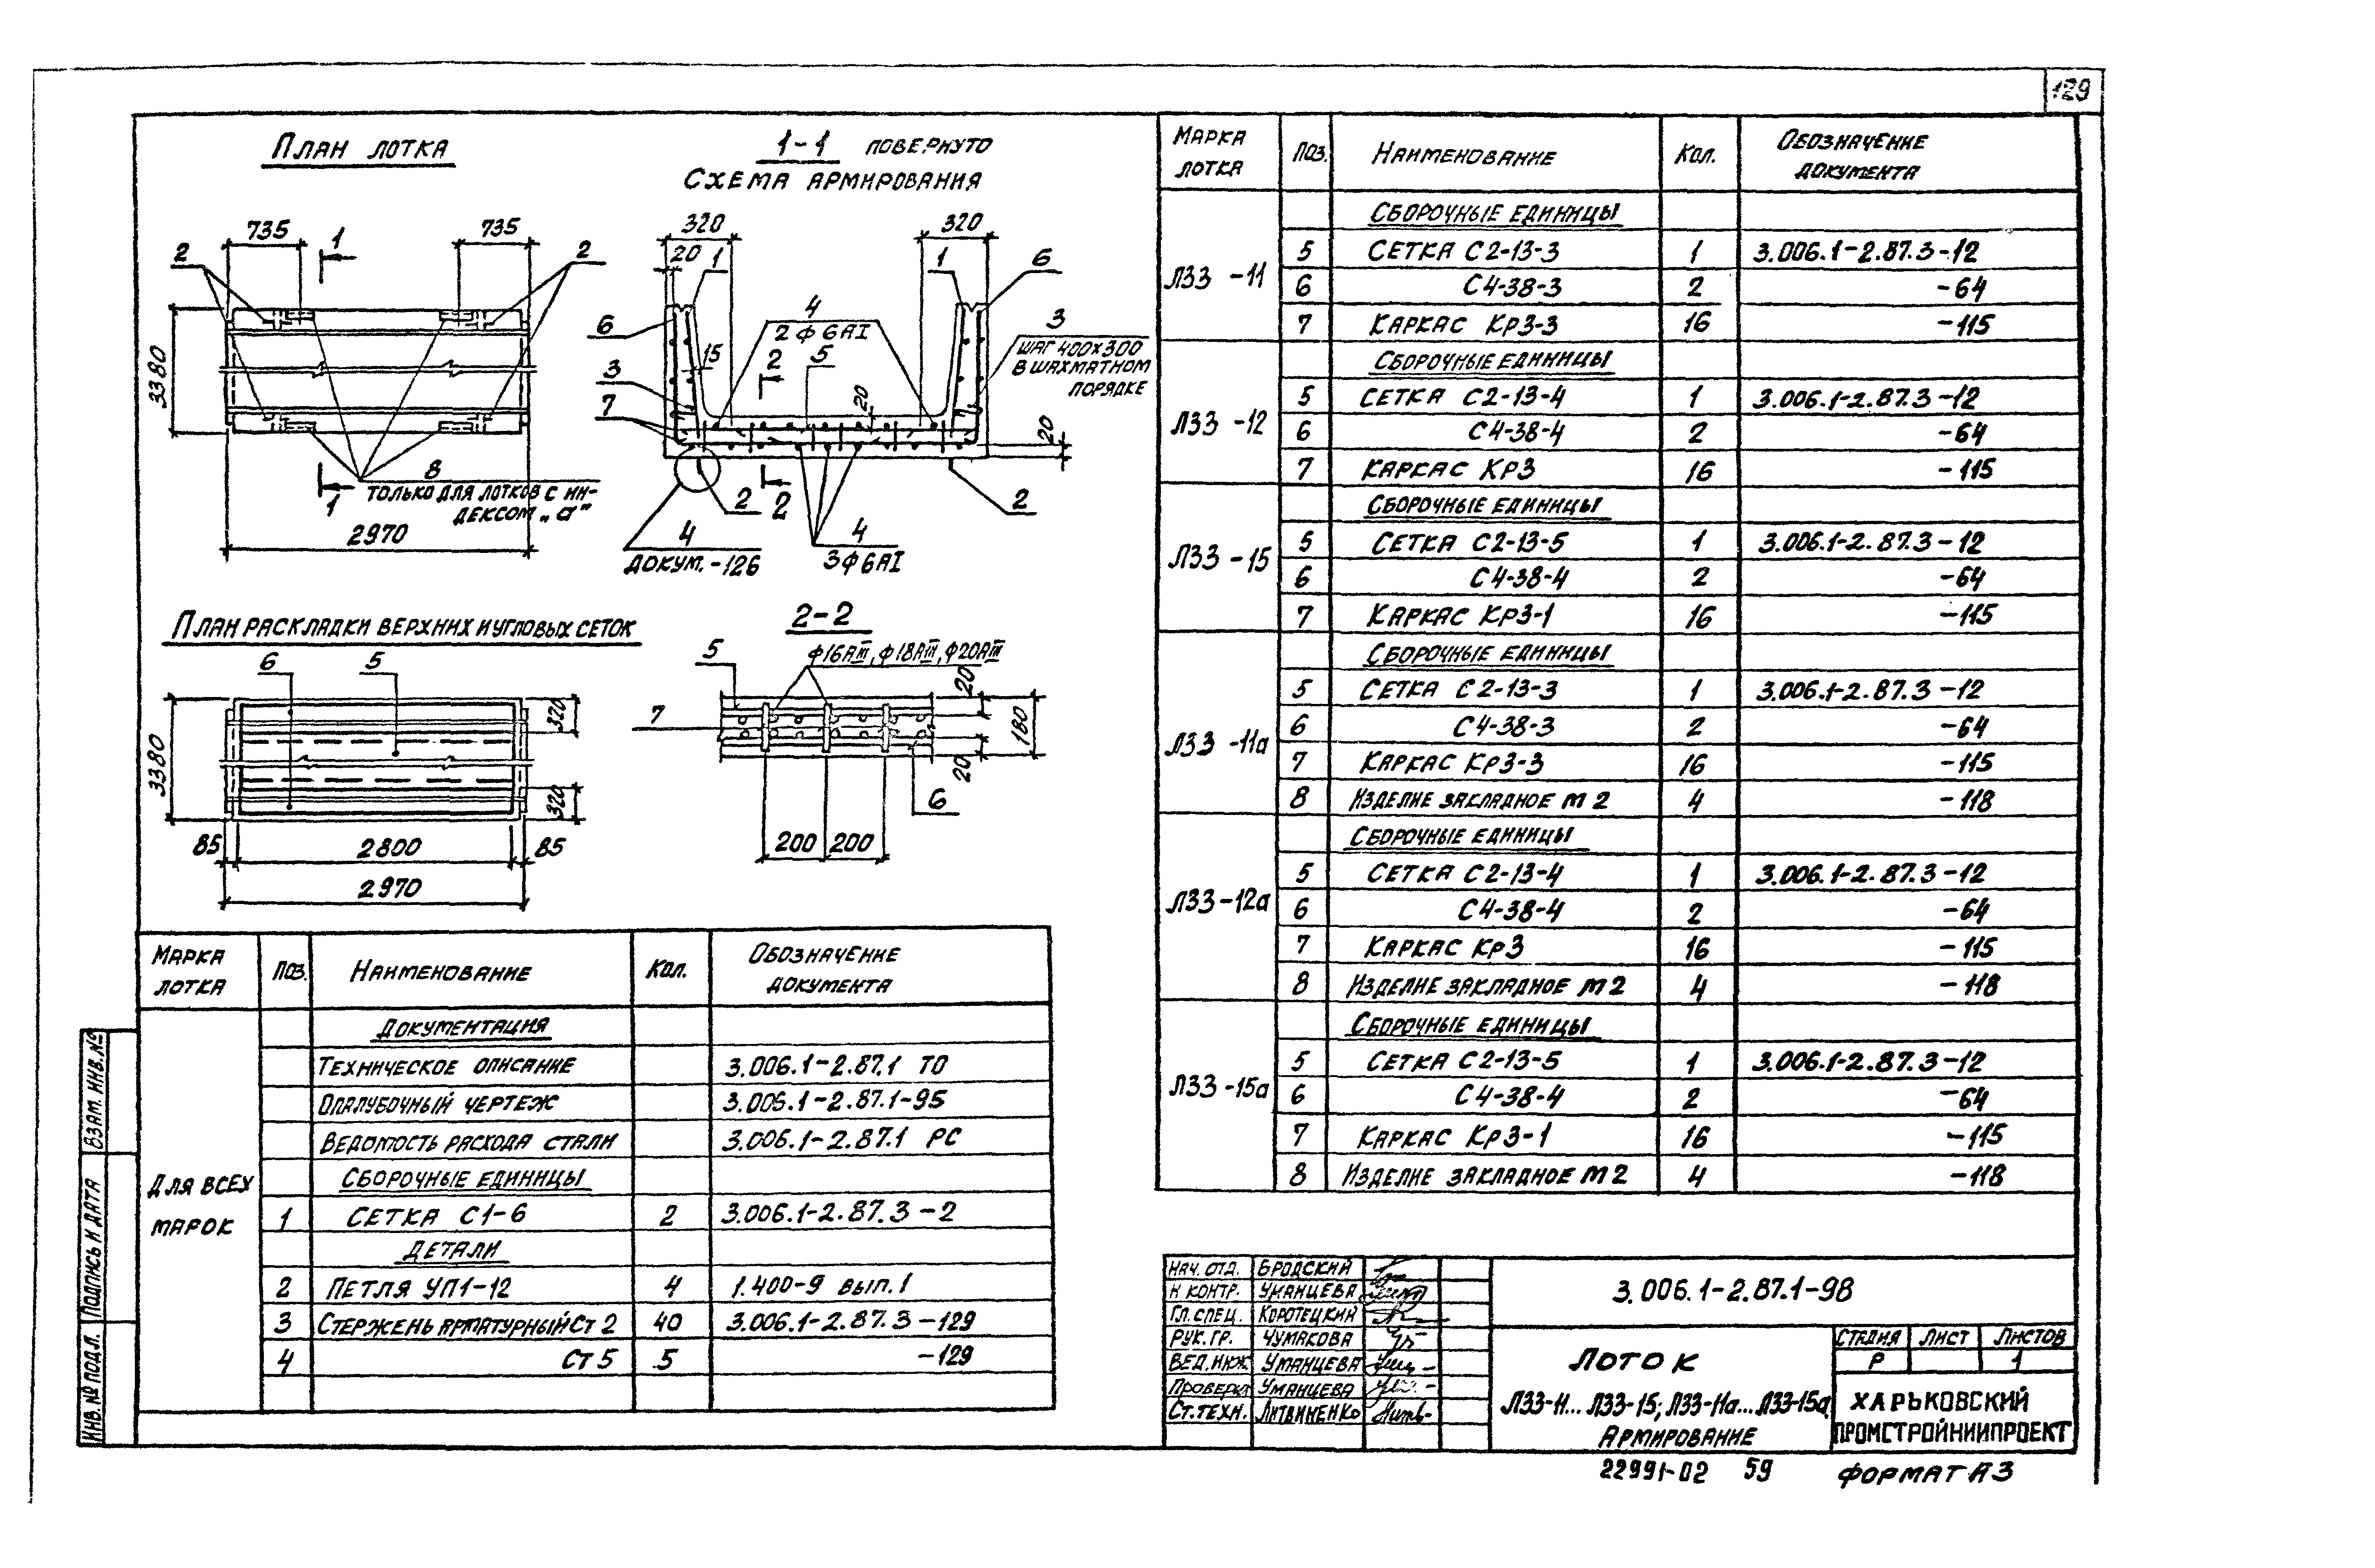 129
План лотка
735
735
1
2
2
3380
8
только для лотков с ин-
дексом „а"
1
2970
1-1 повернуто
Схема армирования
320
320
20
1
1
6
4
2ф6АI
6
3
шаг 400х300
в шахматном
порядке
15
2
5
3
20
7
20
2
2
2
4
докум.-126
4
3ф6АI
План раскладки верхних и угловых сеток
6
5
320
3380
320
85
2800
85
2970
2-2
5
ф16АIII, ф18АIII, ф20АIII
20
7
180
20
6
200
200
Марка лотка
Поз.
Наименование
Кол.
Обозначение документа
Для всех марок
Документация
Техническое описание 3.006.1-2.87.1 ТО
Опалубочный чертеж 3.006.1-2.87.1-95
Ведомость расхода стали 3.006.1-2.87.1 РС
Сборочные единицы
1 Сетка С1-6 2 3.006.1-2.87.3-2
Детали
2 Петля УП1-12 4 1.400-9 вып.1
3 Стержень арматурный Ст 2 40 3.006.1-2.87.3-129
4 Ст 5 5 -129
Марка лотка
Поз.
Наименование
Кол.
Обозначение документа
Л33-11
Сборочные единицы
5 Сетка С2-13-3 1 3.006.1-2.87.3-12
6 С4-38-3 2 -64
7 Каркас Кр3-3 16 -115
Л33-12
Сборочные единицы
5 Сетка С2-13-4 1 3.006.1-2.87.3-12
6 С4-38-4 2 -64
7 Каркас Кр3 16 -115
Л33-15
Сборочные единицы
5 Сетка С2-13-5 1 3.006.1-2.87.3-12
6 С4-38-4 2 -64
7 Каркас Кр3-1 16 -115
Л33-11а
Сборочные единицы
5 Сетка С2-13-3 1 3.006.1-2.87.3-12
6 С4-38-3 2 -64
7 Каркас Кр3-3 16 -115
8 Изделие закладное М2 4 -118
Л33-12а
Сборочные единицы
5 Сетка С2-13-4 1 3.006.1-2.87.3-12
6 С4-38-4 2 -64
7 Каркас Кр3 16 -115
8 Изделие закладное М2 4 -118
Л33-15а
Сборочные единицы
5 Сетка С2-13-5 1 3.006.1-2.87.3-12
6 С4-38-4 2 -64
7 Каркас Кр3-1 16 -115
8 Изделие закладное М2 4 -118
Взам. инв.№
Подпись и дата
Инв.№ подл.
Нач. отд. Бродский
Н контр. Уманцева
Гл.спец. Коротецкий
Рук. гр. Чумакова
Вед.инж Уманцева
Проверил Уманцева
Ст.техн. Литвиненко
3.006.1-2.87.1-98
Лоток
Л33-11...Л33-15; Л33-11а...Л33-15а
Армирование
Стадия Лист Листов
Р 1
Харьковский
Промстройниипроект
22991-02 59
Формат А3